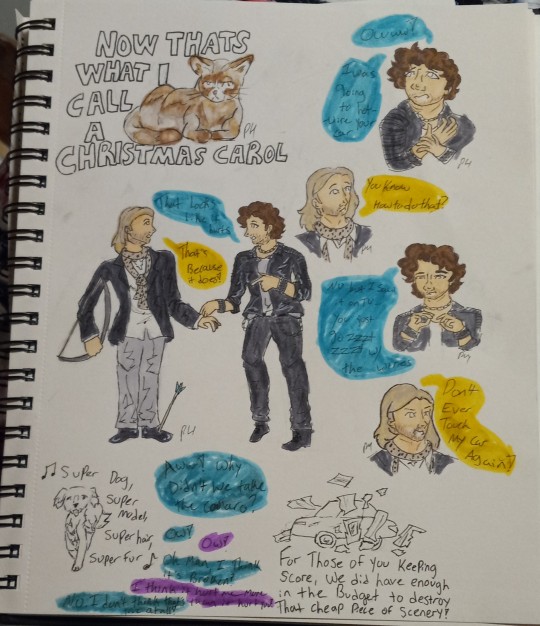 NOW THATS
WHAT I
CALL
A
CHRISTMAS CAROL
PH
Owww!
I was
going
to hot-
wire your
car
PH
You Know
How to do that?
PH
That Looks
Like it
hurts
That's
Because
it does!
PH
you
go zzzt
zzzt w/
the wires
PH
Don't
Ever
Touch
My Car
Again!
PH
♫ Super Dog,
Super
model,
Super hair,
Super fur ♪
Aww! Why
Didn't we take
the Camaro?
Ow!
Ow!
Oh Man, I think
it's Broken!
I think it hurt me more
No, I don't think that's
For Those of You Keeping
Score, We did have enough
in the Budget to destroy
That cheap Piece of Scenery!